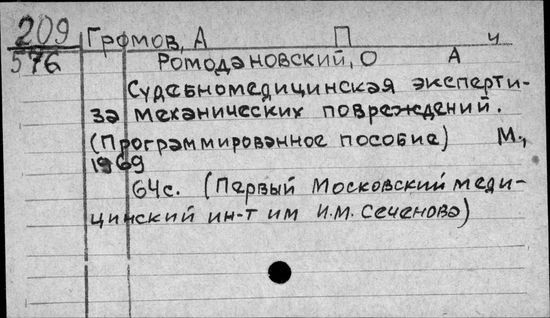 209 Громов, А П и
576 Ромодановский, О А
Судебномедицинская эксперти-
за механических повреждений.
(Программированное пособие) М.,
1969
64с. (Первый Московский меди-
цинский ин-т им И.М. Сеченова)